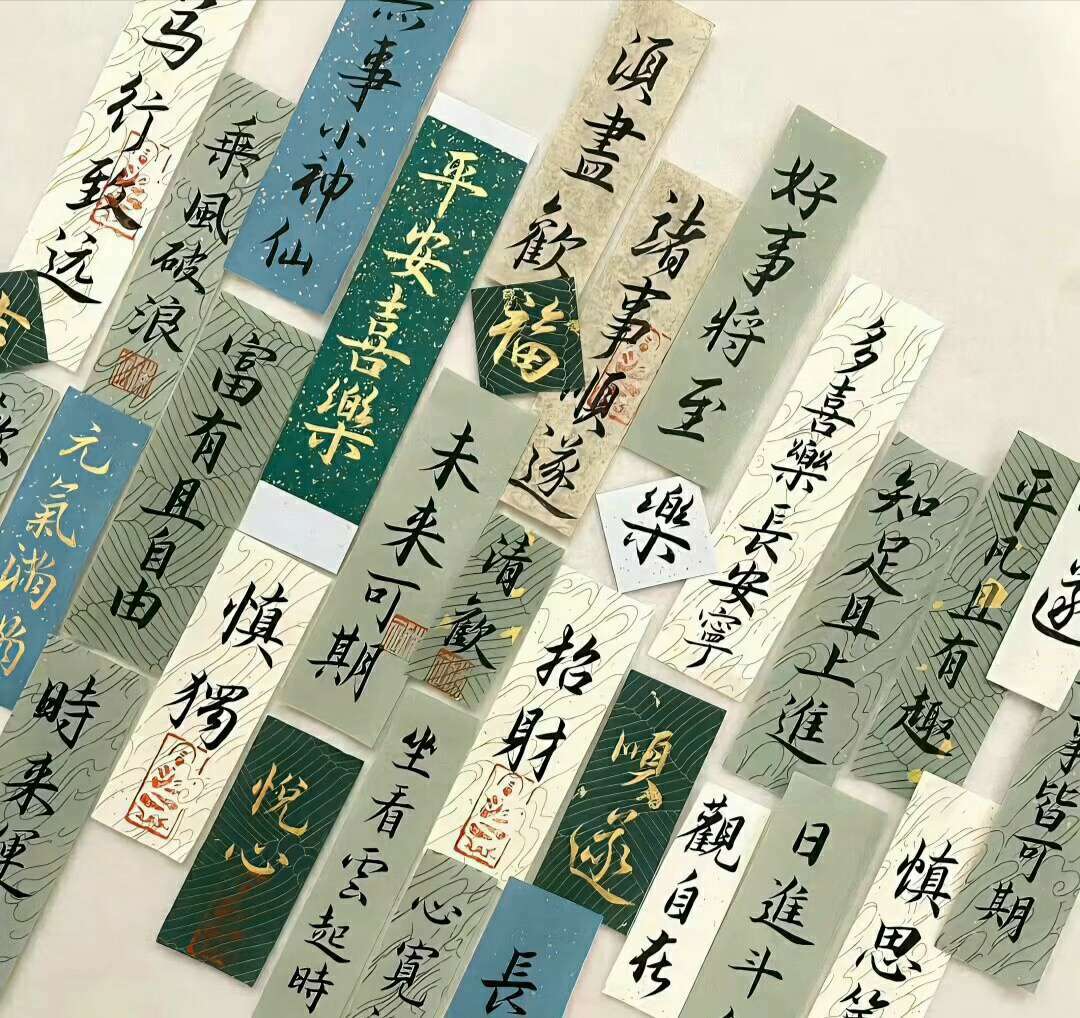 笃行致远
乘風破浪
事小神仙
平安喜樂
須盡歡
諸事順遂
好事将至
福
樂
多喜樂長安寧
知足且上進
平凡且有趣
遂
富有且自由
未来可期
清歡
元氣满满
慎獨
招財
順遂
時来運
悅心
坐看雲起時
心寬
長
觀自在
日進斗
慎思
事皆可期